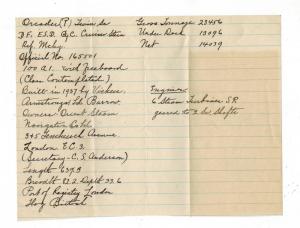 Orcades (T) Twin Sc
D.F. E.S.D. G.C. Cruiser Stern
Ref. Mchy.
Official No. 165001
100 A1. with freeboard
(Class Contemplated)
Built in 1937 by Vickers
Armstrongs Ltd Barrow.
Owners Orient Steam
Navigation Co Ltd.
345 Fenchurch Avenue
London E.C. 3.
(Secretary - C. S. Anderson)
Length 637.3
Breadth 82.2 Depth 33.6
Port of Registry London
Flag British
Gross Tonnage 23456
Under Deck 13096
Net 14029
Engines
6 Steam Turbines S.R.
geared to 2 Sc Shafts